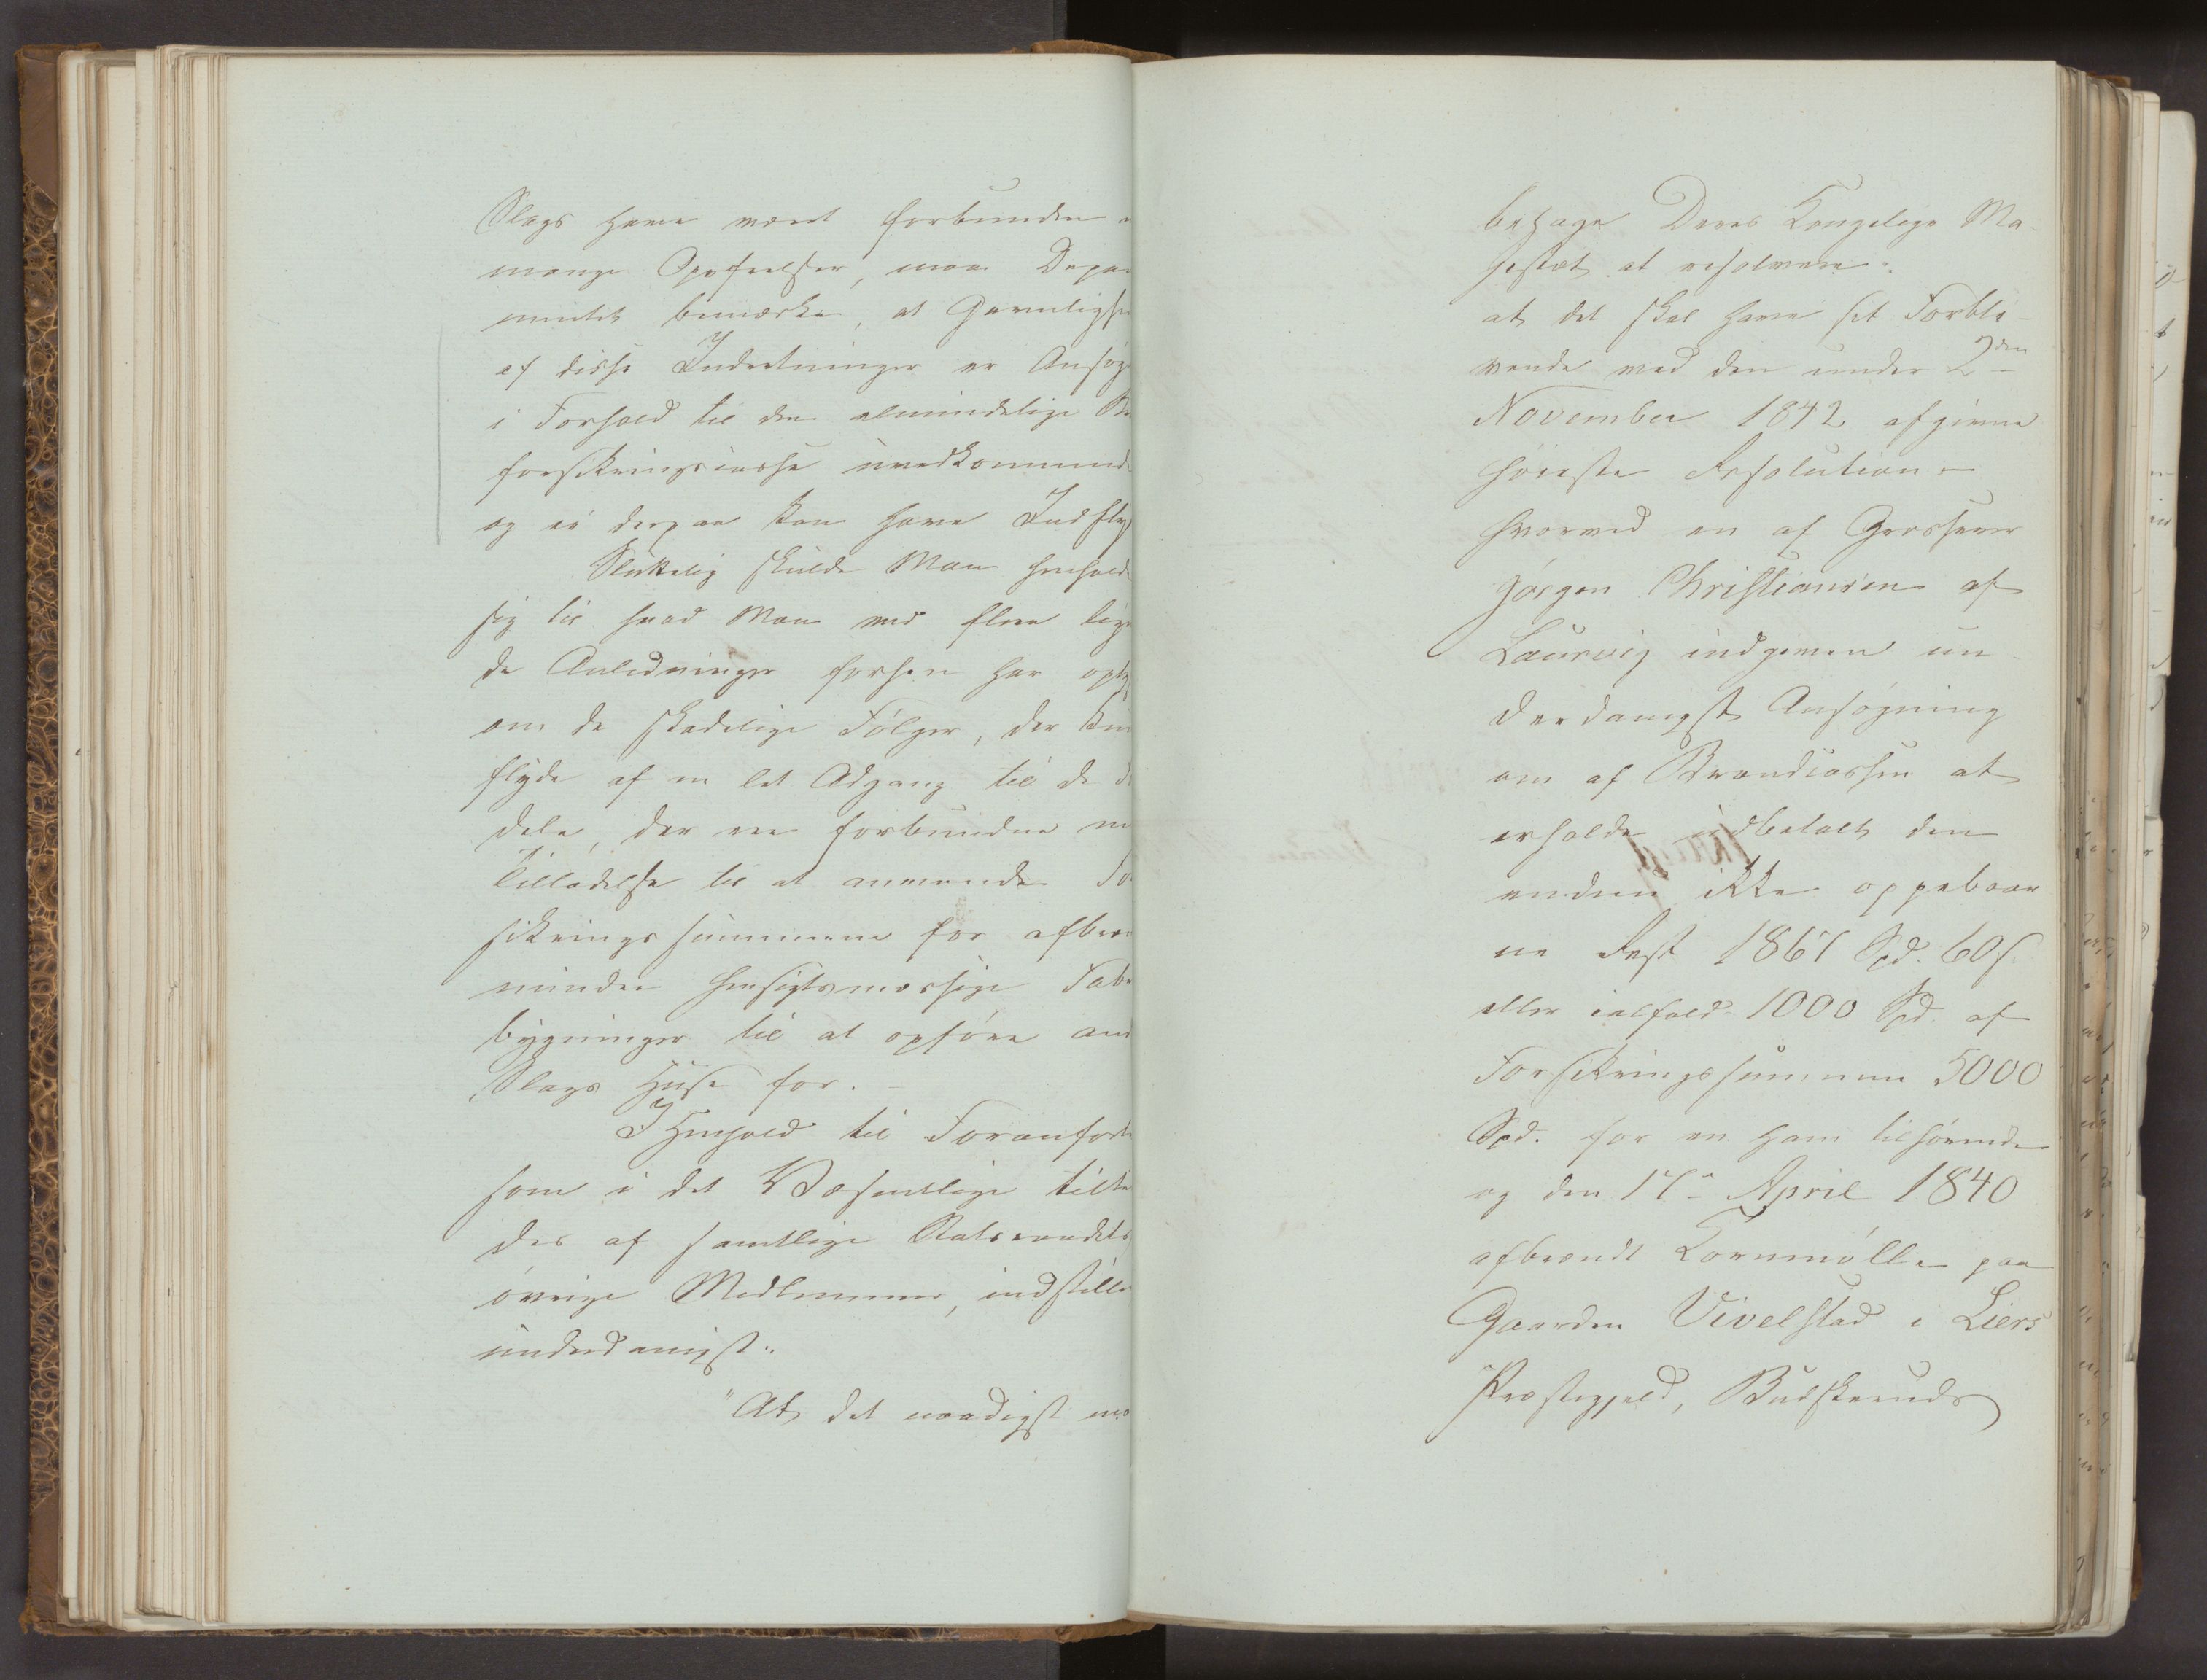 Slags have været forbunden
mange Opofrelser, maa Depar
mentet bemærke, at Gavnlighe
af disse Indretninger er Ansøg
i Forhold til den almindelige Br
forsikringscasse uvedkommend
og ei derpaa kan have Indfly
Sluttelig skulde Man henhold
sig til hvad Man ved flere lig
de Anledninger forhen har opl
om de skadelige Følger, der kun
flyde af en let Adgang til de
dele, der ere forbundne me
Tilladelse til at anvende Fo
sikringssummene for afbræ
mindre hensigtsmæssige Fab
bygninger til at opføre and
Slags Huse for.
I Henhold til Foranførte
som i det Væsentlige tiltr
des af samtlige Statsraadets
øvrige Medlemmer, indstille
underdanigst:
"At det naadigst maa
behage Deres Kongelige Ma-
jestæt at resolvere:
at det skal have sit Forbli-
vende ved den under 2den
November 1842 afgivne
høieste Resolution
hvorved en af Grosserer
Jørgen Christiansen af
Laurvig indgiven un-
derdanigst Ansøgning
om af Brandcassen at
erholde udbetalt den
endnu ikke oppebaar
ne Rest 1861 Spd. 60 s.
eller ialfald 1000 Spd. af
Forsikringssummen 5000
Spd. for en ham tilhørende
og den 17de April 1840
afbrændt Kornmølle paa
Gaarden Vivelstad i Liers
Præstegjeld, Budskeruds